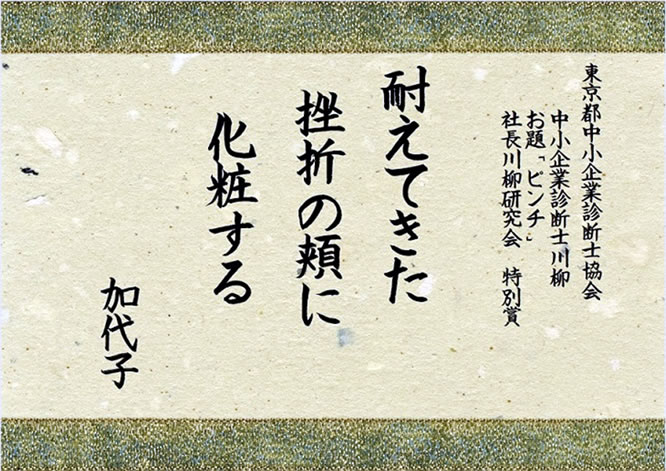 東京都中小企業診断士協会
中小企業診断士川柳
お題「ピンチ」
社長川柳研究会　特別賞
耐えてきた
挫折の頬に
化粧する
加代子